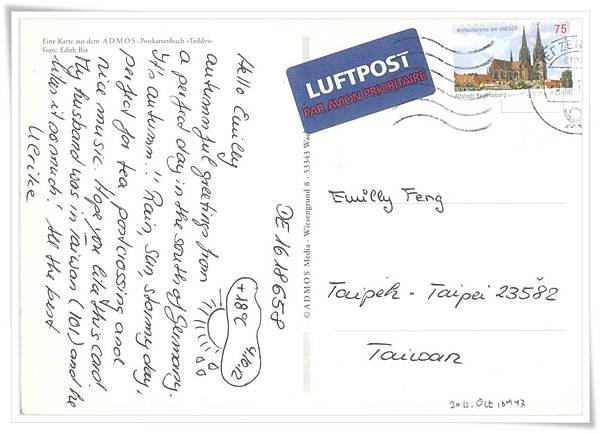 Eine Karte aus dem ADMOS-Postkartenbuch »Teddys«
Foto: Edith Rix
Hello Emilly
autumnful greetings from
a perfect day in the south of Germany.
It's autumn!! Rain, sun, stormy day,
perfect for tea, postcrossing and
nice music. Hope you like this card
My husband was in Taiwan (101) and he
likes it so much! All the best
Ulrike
+18°C
4.10.12
DE 1618658
© ADMOS Media · Wiesengrund 8 · 53343
LUFTPOST
PAR AVION PRIORITAIRE
Weltkulturerbe der UNESCO 75
Altstadt Regensburg
Emilly Feng
Taipeh - Taipei 23582
Taiwan